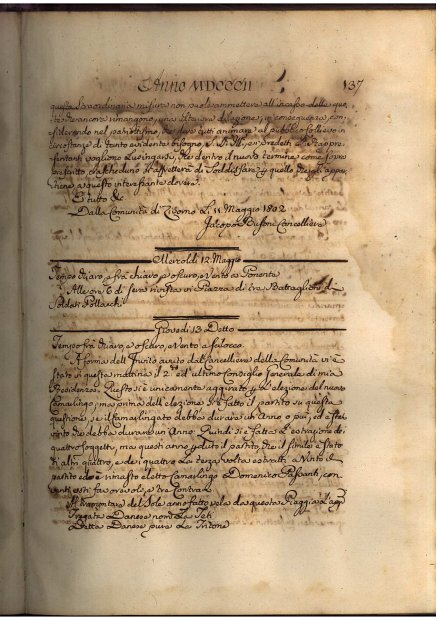 Anno MDCCCII 137
questa straordinaria misura non puole ammettere all'incasso delle quo,
te che ancora rimangono, una ulterior dilazione, in conseguenza, con,
siderando nel patriottismo, che deve tutti animare al pubblico sollievo in
circostanze di tanto evidente bisogno, i predetti Rappre,
sentanti vogliono lusingarsi, che dentro il nuovo termine come sopra
ciascheduno si affretterà di soddisfare quello che gli appar,
tiene a questo interessante dovere.
E tutto &c
Dalla Comunità di Livorno Li 11 Maggio 1802
Jacopo Cancelliere
Mercoldi 12 Maggio
Tempo chiaro, e fra chiaro, e oscuro, e Vento a Ponente
Alle ore 6 di sera rivista in Piazza di tre Battaglioni di
Soldati Pollacchi
Giovedi 13 Detto
Tempo fra chiaro, e oscuro, e Vento a Scilocco
A forma dell'Invito avuto dal Cancelliere della Comunità vi è
stato questa mattina il 2º ed ultimo Consiglio Generale di mia
Residenza. Questo si è unicamente aggirato per l'elezione del nuovo
Camarlingo, ma prima dell'elezione si è fatto il partito su questa
questione, se il Camarlingato debba durare un Anno o più, ed è stato
vinto che debba durare un Anno. Quindi si è fatta l'estrazione dei
quattro soggetti, ma questi anno perduto il partito, che il simile è stato
di altri quattro, e dei quattro la terza volta estratti. Vinto il
partito ed è rimasto eletto Camarlingo Domenico con
venti voti favorevoli, e tre Contrari
Al tramontare del Sole anno fatto vela da questa Piaggia la
Fregata Danese nomª La Teti
Detta Danese pure La Tritone